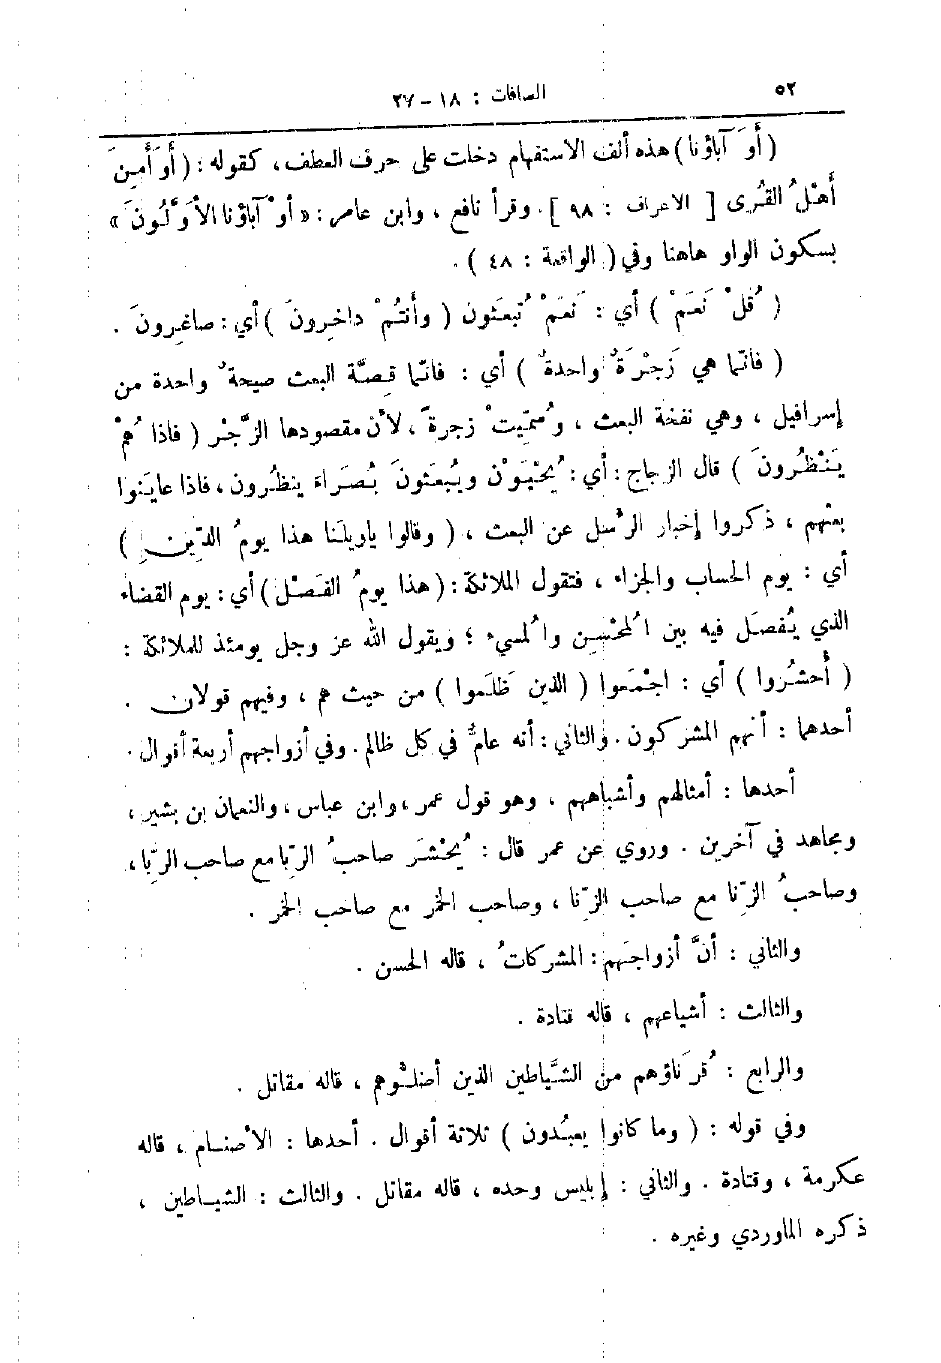 ٥٢
الصافات : ١٨ - ٢٧
( أَوَ آباؤنا ) هذه ألف الاستفهام دخلت على حرف العطف ، كقوله : ( أَوَ أَمِنَ
أَهْلُ القُرى [ الاعراف : ٩٨ ] . وقرأ نافع ، وابن عامر : « أوْ آباؤنا الأوَّلُونَ »
بسكون الواو هاهنا وفي ( الواقعة : ٤٨ ) .
( قُلْ نَعَمْ ) أي : نَعَمْ تُبعَثون ( وأَنتُمْ داخِرونَ ) أي : صاغِرونَ .
( فانَّما هي زَجْرَةٌ واحدةٌ ) أي : فانَّما قِصَّة البعث صيحةٌ واحدة من
إسرافيل ، وهي نفخة البعث ، وسُمِّيتْ زجرةً ، لأن مقصودها الزَّجْر ( فاذا هُمْ
يَنْظُرونَ ) قال الزجاج : أي : يُحْيَوْن ويُبعَثونَ بُصَراءَ ينظُرون ، فاذا عايَنوا
بعثهم ، ذكروا إخبار الرُّسل عن البعث ، ( وقالوا ياويلَنا هذا يومُ الدِّين )
أي : يوم الحساب والجزاء ، فتقول الملائكة : ( هذا يومُ الفَصْل ) أي : يوم القضاء
الذي يُفصَل فيه بين المُحْسِن والمُسيء ؛ ويقول الله عز وجل يومئذ للملائكة :
( أُحشُروا ) أي : اجْمَعوا ( الذين ظَلَموا ) من حيث هم ، وفيهم قولان .
أحدهما : أنهم المشركون . والثاني : أنه عامٌّ في كل ظالم . وفي أزواجهم أربعة أقوال .
أحدها : أمثالهم وأشباههم ، وهو قول عمر ، وابن عباس ، والنعمان بن بشير ،
ومجاهد في آخرين . وروي عن عمر قال : يُحْشَر صاحبُ الرِّبا مع صاحب الرِّبا ،
وصاحبُ الزِّنا مع صاحب الزِّنا ، وصاحب الخمر مع صاحب الخمر .
والثاني : أنَّ أزواجَهم : المشركاتُ ، قاله الحسن .
والثالث : أشياعهم ، قاله قتادة .
والرابع : قُرَناؤهم من الشَّياطين الذين أضلُّوهم ، قاله مقاتل .
وفي قوله : ( وما كانوا يعبُدون ) ثلاثة أقوال . أحدها : الأصنام ، قاله
عكرمة ، وقتادة . والثاني : إبليس وحده ، قاله مقاتل . والثالث : الشياطين ،
ذكره الماوردي وغيره .